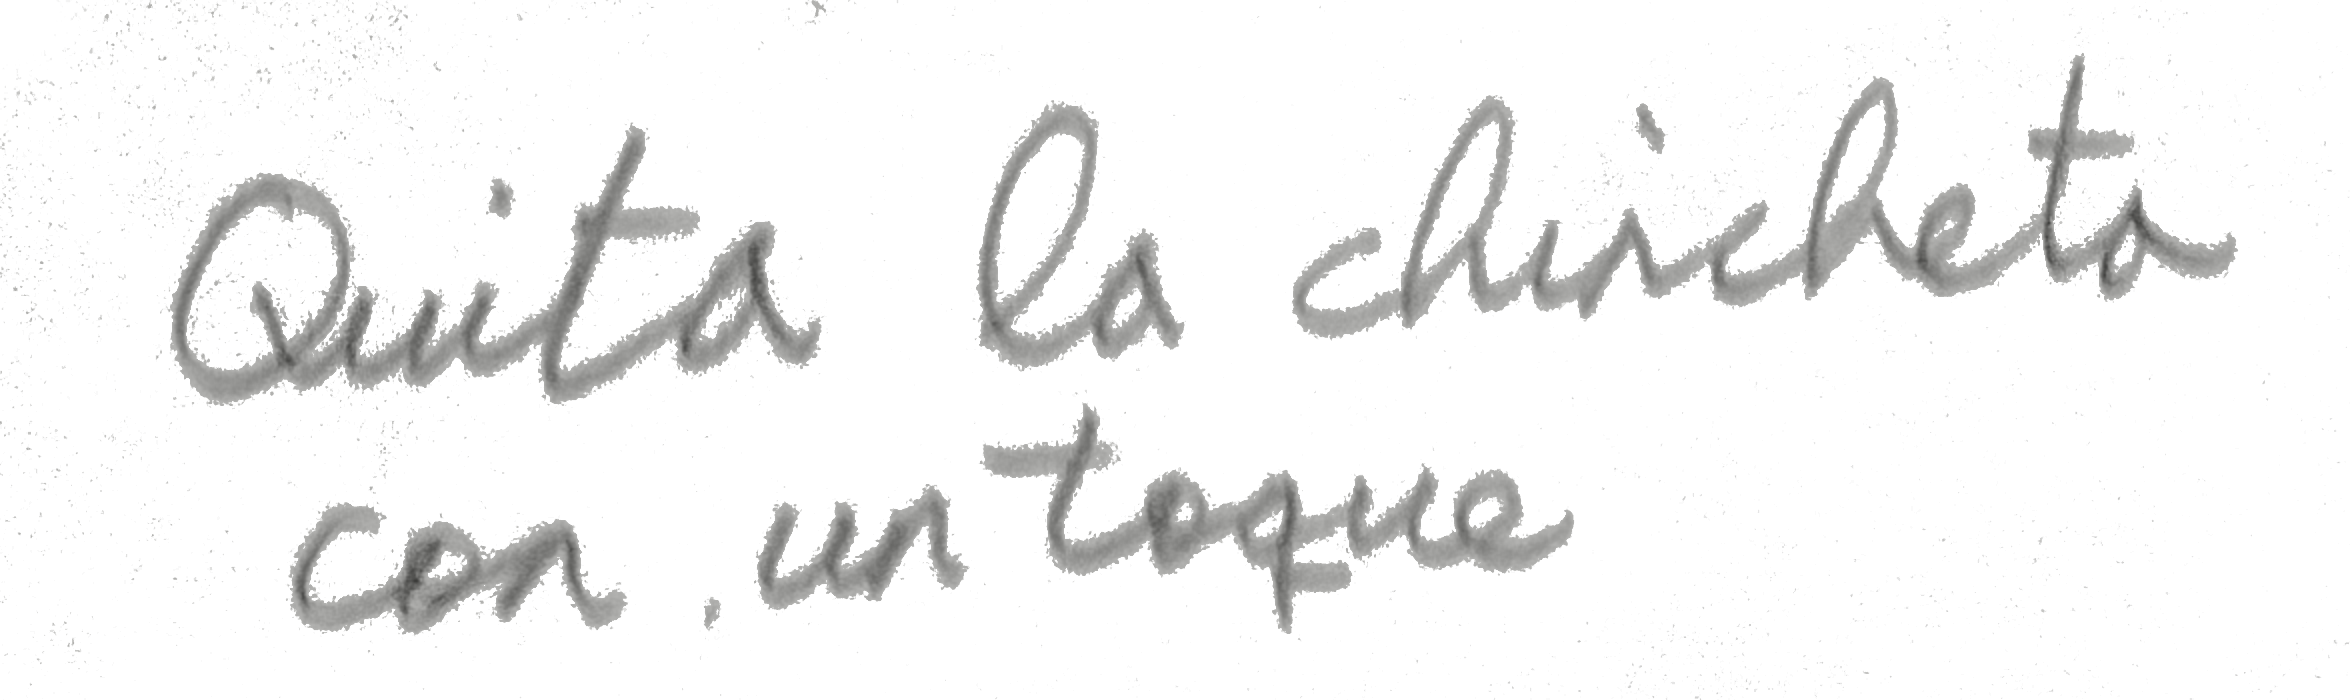 Quita la chincheta
con un toque